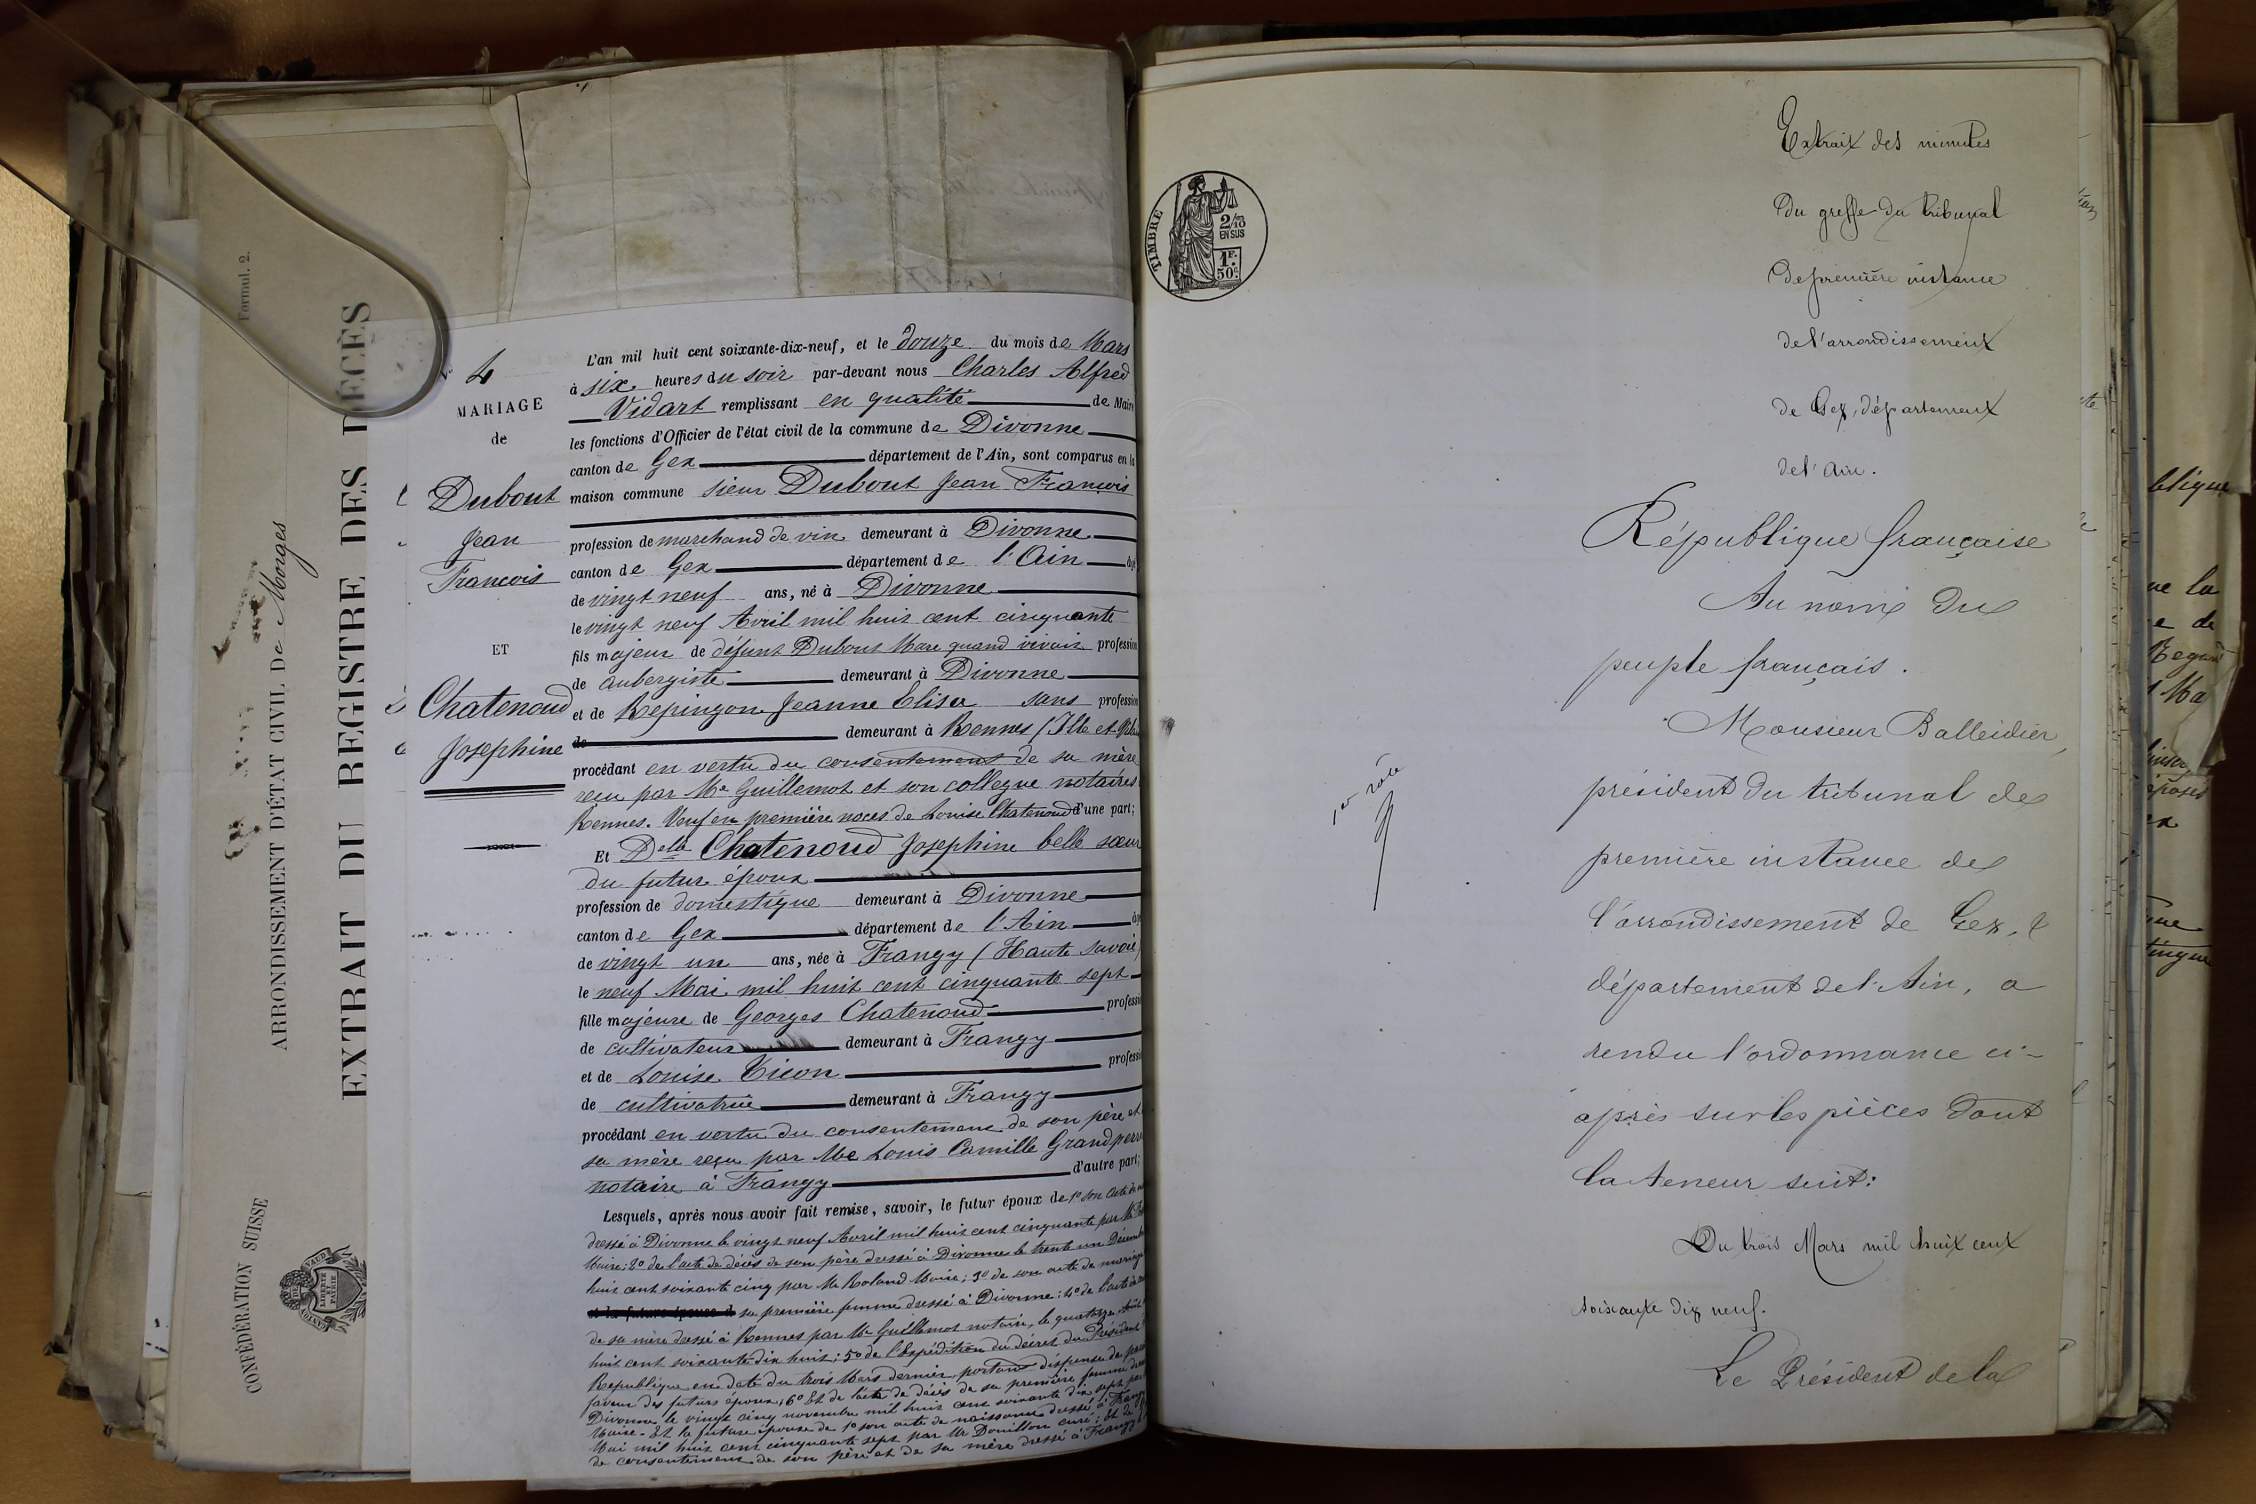 CONFÉDÉRATION SUISSE
CANTON DE VAUD
LIBERTÉ ET PATRIE
ARRONDISSEMENT D'ÉTAT CIVIL De Morges
Formul. 2.
EXTRAIT DU REGISTRE DES DÉCÈS
4
MARIAGE
de
Dubout
Jean
Francois
ET
Chatenoud
Josephine
L'an mil huit cent soixante-dix-neuf, et le douze du mois de Mars
à six heures du soir par-devant nous Charles Alfred
Vidart remplissant en qualité de Maire
les fonctions d'Officier de l'état civil de la commune de Divonne
canton de Gex département de l'Ain, sont comparus en la
maison commune sieur Dubout Jean François
profession de marchand de vin demeurant à Divonne
canton de Gex département de l'Ain âgé
de vingt neuf ans, né à Divonne
le vingt neuf Avril mil huit cent cinquante
fils majeur de défunt Dubout Marc quand vivait profession
de aubergiste demeurant à Divonne
et de Repingon Jeanne Elisa sans profession
de demeurant à Rennes (Ille et
procédant en vertu du consentement de sa mère
reçu par Me Guillemot et son collegue notaires
Rennes. Veuf en première noces de Louise Chatenoud d'une part;
Et Delle Chatenoud Josephine belle sœur
du futur époux
profession de domestique demeurant à Divonne
canton de Gex département de l'Ain
de vingt un ans, née à Frangy (Haute Savoie)
le neuf Mai mil huit cent cinquante sept
fille majeure de Georges Chatenoud profession
de cultivateur demeurant à Frangy
et de Louise Ticon profession
de cultivatrice demeurant à Frangy
procédant en vertu du consentement de son père et
sa mère reçu par Me Louis Camille Grandperre
notaire à Frangy d'autre part;
Lesquels, après nous avoir fait remise, savoir, le futur époux de 1° son acte de
dressé à Divonne le vingt neuf Avril mil huit cent cinquante par Mr
Maire; 2° de l'acte de décès de son père dressé à Divonne le trente un Décembre
huit cent soixante cinq par Mr Roland Maire; 3° de son acte de mariage
et la future épouse d sa première femme dressé à Divonne; 4° de l'acte de
de sa mère dressé à Rennes par Me Guillemot notaire, le quatorze Août
huit cent soixante dix huit; 5° de l'Expédition du décret du Président
République en date du trois Mars dernier portant dispense de
faveur des futurs époux; 6° Et de l'acte de décès de sa première femme
Divonne le vingt cinq novembre mil huit cent soixante dix sept par
Maire - Et la future épouse de 1° son acte de naissance dressé à Frangy
Mai mil huit cent cinquante sept par Mr Douillon curé; Et de
de consentement de son père et de sa mère dressé à Frangy
TIMBRE
2/10
EN SUS
1F.
50c.
1er rôle
Extrait des minutes
du greffe du tribunal
de première instance
de l'arrondissement
de Gex, département
de l'Ain.
République française
Au nom du
peuple français.
Monsieur Balleidier,
président du tribunal de
première instance de
l'arrondissement de Gex,
département de l'Ain, a
rendu l'ordonnance ci-
après sur les pièces dont
la teneur suit:
Du trois Mars mil huit cent
soixante dix neuf.
Le Président de la